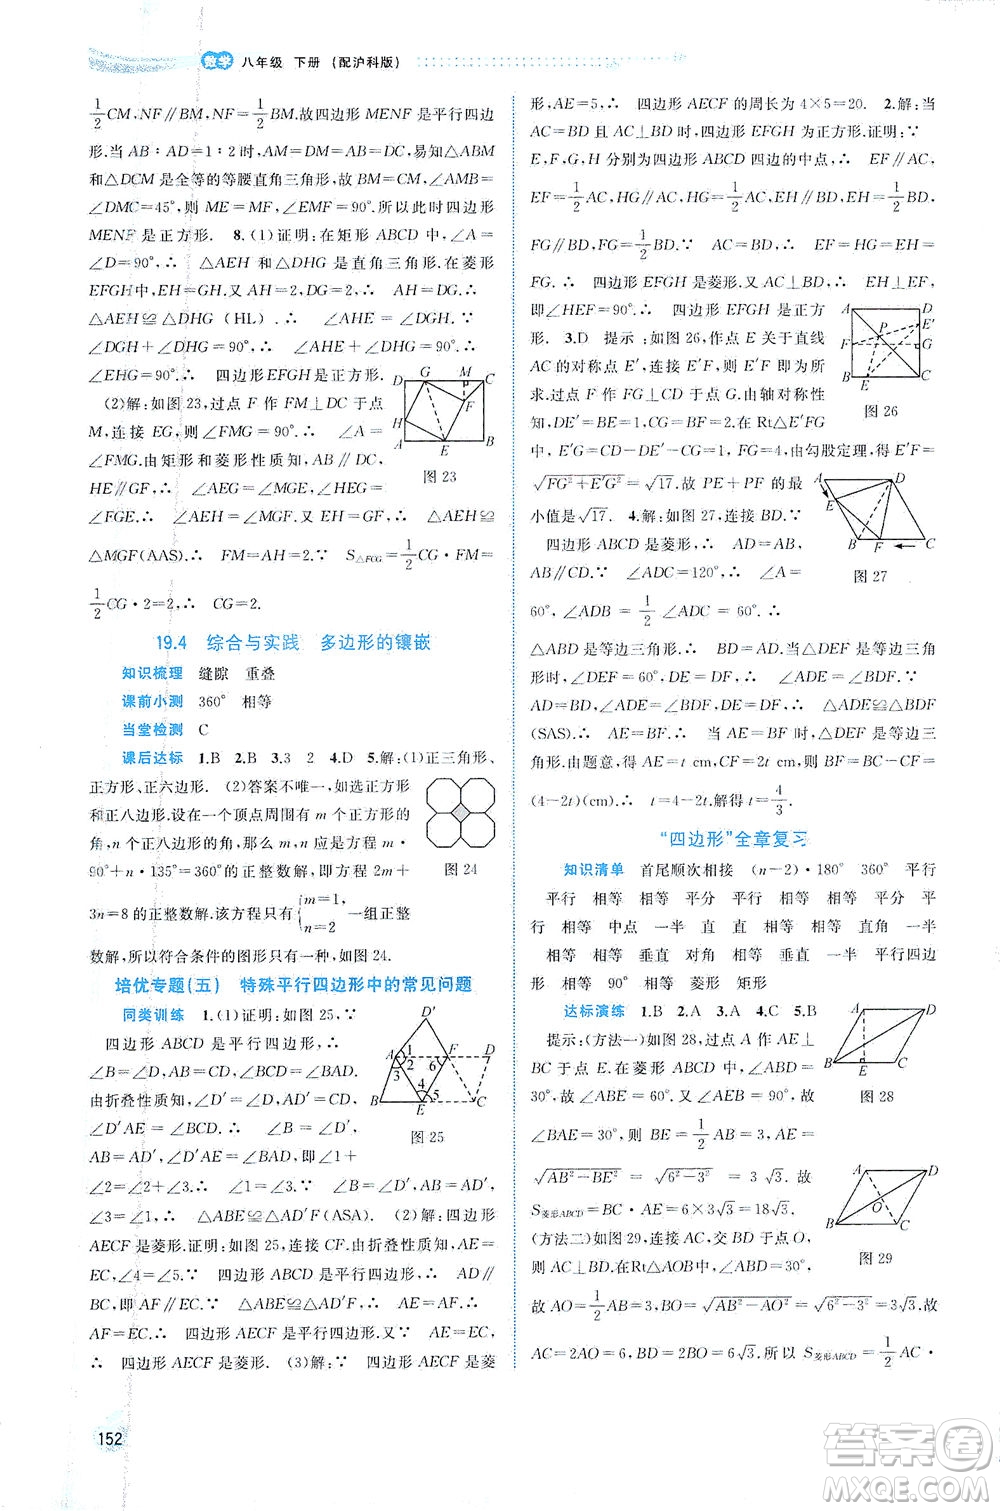 数学 八年级 下册 (配沪科版)
1/2 CM,MF∥BM,MF=1/2 BM.故四边形 MENF 是平行四边
形.当 AB∶AD=1∶2时,AM=DM=AB,易知△ABM
和△DCM 是全等的等腰直角三角形,故∠AMB=
∠DMC=45°,则 ME=MF,∠EMF=90°.所以此时四边形
MENF 是正方形. 8.(1)证明:在矩形 ABCD 中,∠A=
∠D=90°,∴ △AEH 和△DHG 是直角三角形.在菱形
EFGH中,EH=GH.又 AH=2,DG=2,∴ AH=DG.∴
△AEH≌△DHG (HL).∴ ∠AHE=∠DGH.∵
∠DGH+∠DHG=90°,∴ ∠AHE+∠DHG=90°.∴
∠EHG=90°.∴ 四边形EFGH是正方形.
(2)解:如图 23,过点 F 作 FM⊥DC 于点
M,连接 EG,则∠FMG=90°.∴ ∠A=
∠FMG.由矩形和菱形性质知,AB∥CD,
HE∥GF,∴ ∠AEG=∠MGE,∠HEG=
∠FGE.∴ ∠AEH=∠MGF.又 EH=GF,∴ △AEH≌
△MGF(AAS).∴ FM=AH=2.∵ S△FCG=1/2 CG·FM=
1/2 CG·2=2,∴ CG=2.
D G M C
H F
A E B
图 23
19.4 综合与实践 多边形的镶嵌
知识梳理 缝隙 重叠
课前小测 360° 相等
当堂检测 C
课后达标 1.B 2.B 3.3 2 4.D 5.解:(1)正三角形、
正方形、正六边形. (2)答案不唯一,如正方形
和正八边形,设在一个顶点周围有 m 个正方形的
角、n 个正八边形的角,则 m,n 应是方程 m·
90°+n·135°=360°的正整数解,即方程 2m+
3n=8 的正整数解.这个方程的正整数解只有{m=1,n=2一组正整数
解,所以符合条件的图形只有一种,如图 24.
图 24
培优专题(五) 特殊平行四边形中的常见问题
同类训练 1.(1)证明:如图 25,∵
四边形 ABCD 是平行四边形,∴
∠B=∠D,AB=CD,∠C=∠BAD.
由折叠性质知,∠D=∠D′,CD=
AD′,∠C=∠D′AE.∴ ∠B=∠D′,
AB=AD′,∠D′AE=∠BAD,即∠1+
∠2=∠2+∠3.∴ ∠1=∠3.∵ ∠B=∠D′,AB=AD′,
∠1=∠3,∴ △ABE≌△AD′F(ASA). (2)解:四边形
AECF 是菱形.证明:如图 25,由折叠性质知,AE=
EC,∠4=∠5.∵ 四边形 ABCD 是平行四边形,∴ AD∥
BC,即 AF∥EC.又 △ABE≌△AD′F,∴ AF=AE.∴
AF=EC.∴ 四边形 AECF 是平行四边形.又∵ AF=AE,
∴ 四边形 AECF 是菱形. (3)解:∵ 四边形 AECF 是菱
D′
A 1 2 F D
3 6
4
B E 5 C
图 25
形,AE=5,∴ 四边形 AECF 的周长为 4×5=20. 2.解:当
AC=BD 且 AC⊥BD 时,四边形 EFGH 为正方形.证明:∵
E,F,G,H 分别为四边形 ABCD 四边的中点,∴ EF∥AC,
EF=1/2 AC,HG∥AC,HG=1/2 AC,EH∥BD,EH=1/2 BD,
FG∥BD,FG=1/2 BD.∵ AC=BD,∴ EF=HG=EH=
FG.∴ 四边形 EFGH 是菱形.∵ AC⊥BD,∴ EH⊥EF,
即∠HEF=90°.∴ 四边形 EFGH 是正方
形. 3.D 提示:如图 26,作点 E 关于直线
AC 的对称点 E′,连接 E′F,则 E′F 即为所求,
过点 F 作 FG⊥CD 于点 G.由轴对称性质可
知,DE′=BE=1,CE′=CD-1=3.在 Rt△E′FG
中,E′G=CD-DE′-CG=1,FG=4,由勾股定理,得 E′F=
√FG²+E′G²=√17.故 PE+PF 的最
小值是√17. 4.解:如图 27,连接 BD.∵
四边形 ABCD 是菱形,∴ AD=AB,
AB∥CD.∵ ∠ADC=120°,∴ ∠A=
60°,∠ADB=1/2∠ADC=60°.∴
△ABD 是等边三角形.∴ BD=AD.又△DEF 是等边三角
形,∴ ∠DEF=60°,DE=DF,∴ ∠ADB-∠BDE=∠EDF-
∠BDE,即∠ADE=∠BDF.∴ △ADE≌△BDF
(SAS).∴ AE=BF=t cm.∴ 当 AE=BF 时,△DEF 是等边三
角形.由题意,可得 AE=t cm,CF=2t cm,∴ BF=BC-CF=
(4-2t)(cm).∴ t=4-2t,解得 t=4/3.
A D
E′
P
F G
B E C
图 26
A D
E
B F C
图 27
“四边形”全章复习
知识清单 首尾顺次相接 (n-2)·180° 360° 平行
平行 相等 相等 平分 平行 相等 相等 平分 平
行 相等 中点 一半 直 直 相等 直角 一半
相等 相等 垂直 对角 相等 垂直 一半 平行四边形
直角 相等 垂直 相等 菱形 90° 矩形
达标演练 1.B 2.A 3.A 4.C 5.B
提示:(方法一)如图 28,过点 A 作 AE⊥
BC 于点 E.在菱形 ABCD 中,∠ABC=
120°,AB=BC=AD=6,AD∥BC,故
∠BAE=30°,则 BE=1/2 AB=3,AE=
√AB²-BE²=√6²-3²=3√3.故
S菱形ABCD=BC·AE=6×3√3=18√3.
(方法二)如图 29,连接 AC 交 BD 于点 O,
则 BD⊥AC.在Rt△AOB 中,∠ABO=30°,
故 AO=1/2 AB=3,BO=√AB²-AO²=√6²-3²=3√3,故
AC=2AO=6,BD=2BO=6√3.所以 S菱形ABCD=1/2 AC·
A D
B E C
图 28
A D
O
B C
图 29
152
答案圈
MXQE.COM